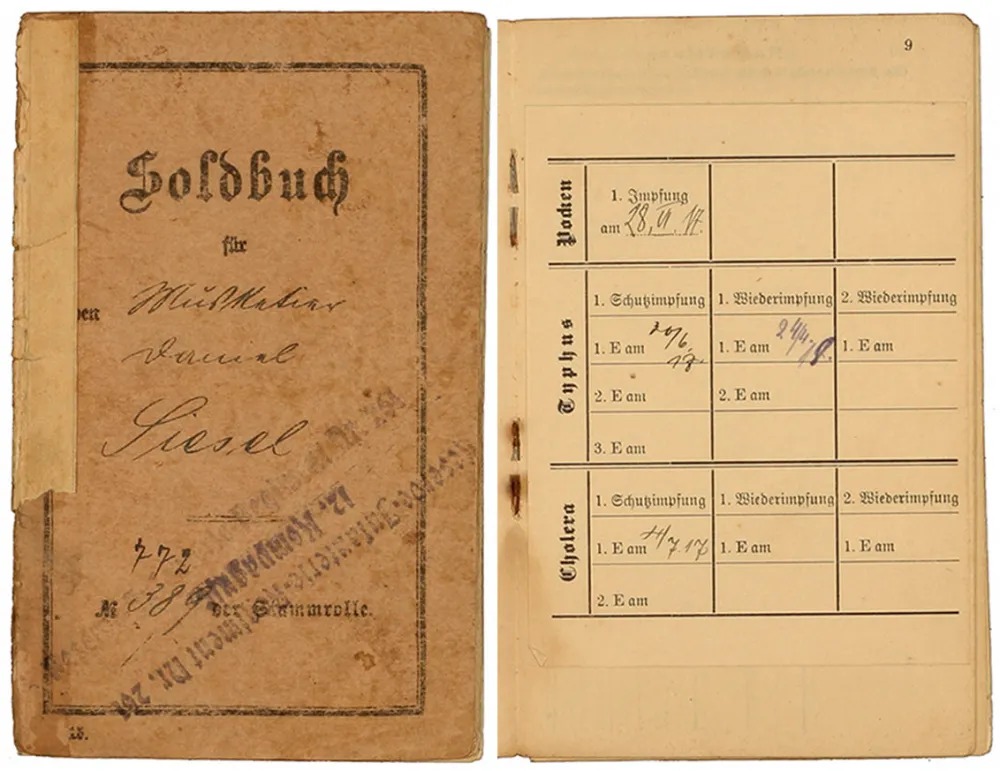 Soldbuch
für
den Musketier
Daniel
Siesel
772
№ 389 der Stammrolle.
Reserve-Infanterie-Regiment Nr.
12. Kompagnie
9
Pocken
1. Impfung
am 28. VI. 17
Typhus
1. Schutzimpfung 1. Wiederimpfung 2. Wiederimpfung
1. E am 20/6. 17. 1. E am 1. E am
2. E am 2. E am
3. E am
Cholera
1. Schutzimpfung 1. Wiederimpfung 2. Wiederimpfung
1. E am 4/7.17 1. E am 1. E am
2. E am